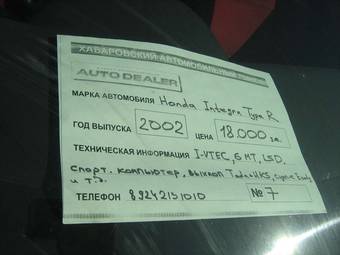 ХАБАРОВСКИЙ АВТОМОБИЛЬНЫЙ
AUTO DEALER
МАРКА АВТОМОБИЛЯ Honda Integra Type R
ГОД ВЫПУСКА 2002 ЦЕНА 18.000 у.е.
ТЕХНИЧЕСКАЯ ИНФОРМАЦИЯ I-VTEC, 6 MT, LSD,
Спорт. компьютер, выхлоп
и т.д.
ТЕЛЕФОН 89242151010 №7